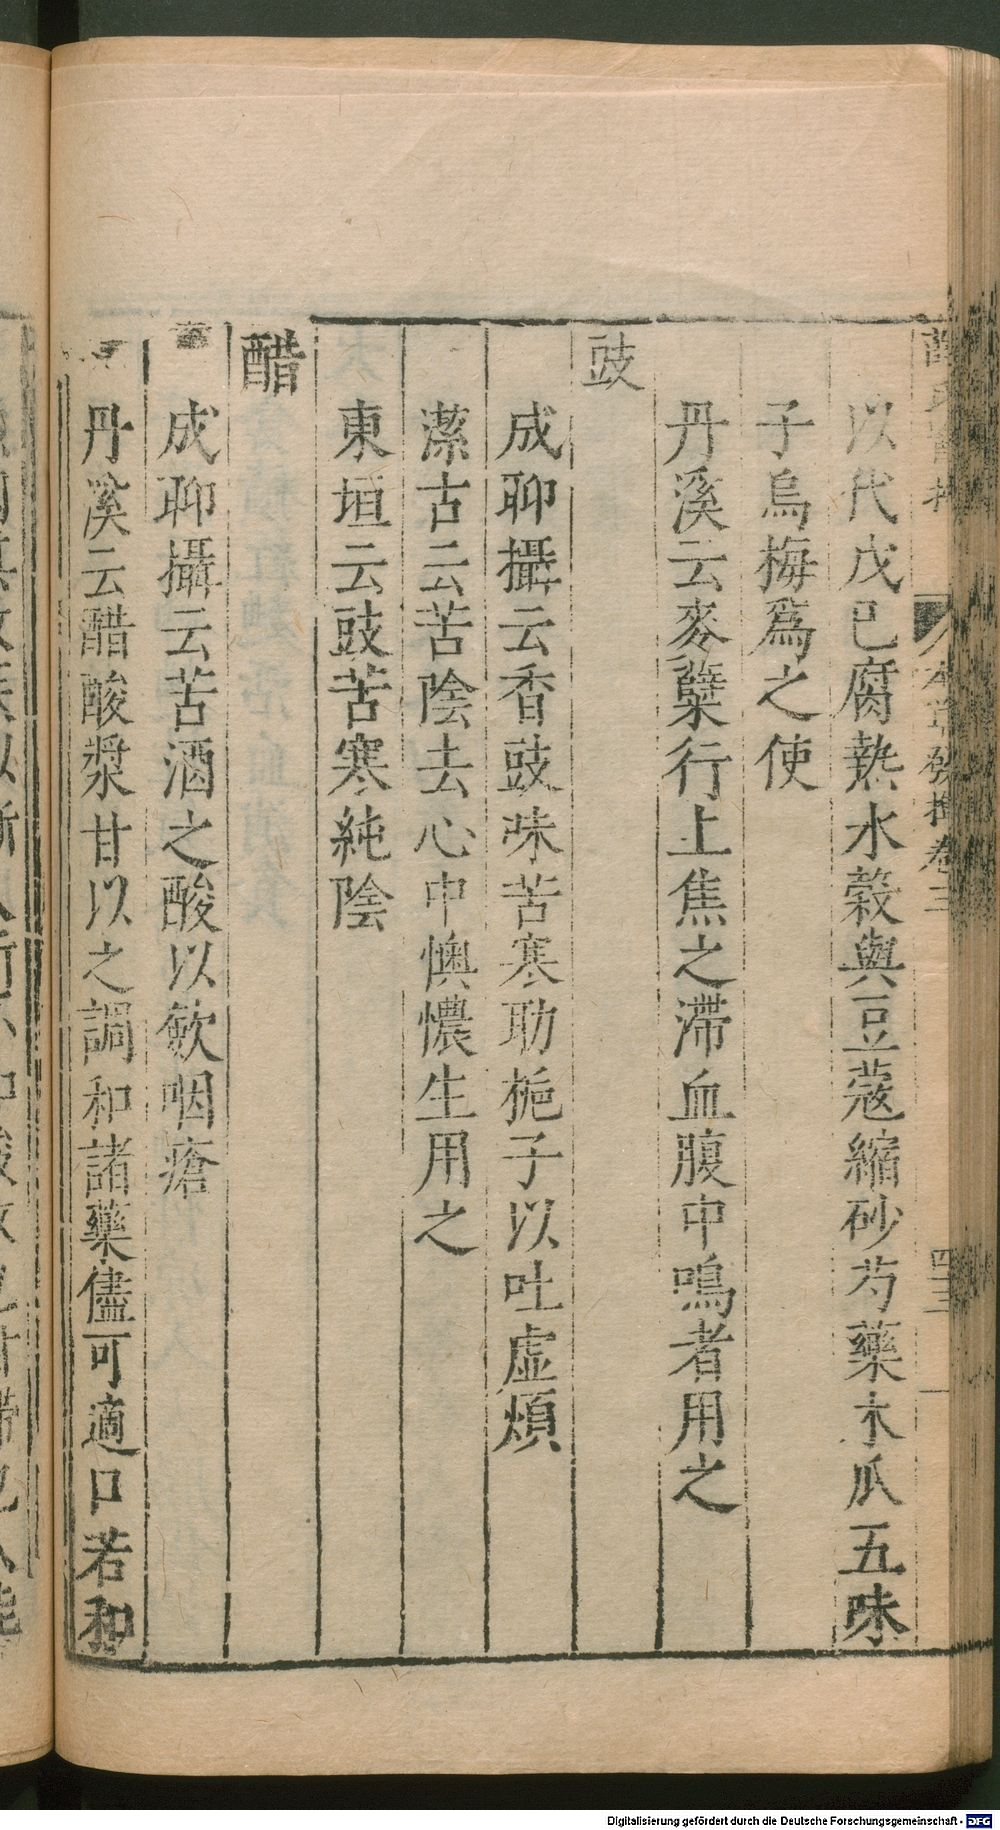 以代戊已腐熱水穀與豆蔻縮砂芍藥木爪五味
子烏梅爲之使
丹溪云麥蘖行上焦之滯血腹中鳴者用之
豉
成聊攝云香豉味苦寒助梔子以吐虚煩
潔古云苦陰去心中懊憹生用之
東垣云豉苦寒純陰
醋
成聊攝云苦酒之酸以斂咽瘡
丹溪云醋酸漿甘以之調和諸藥儘可適口若和
本草發揮卷三
四三
Digitalisierung gefördert durch die Deutsche Forschungsgemeinschaft - DFG